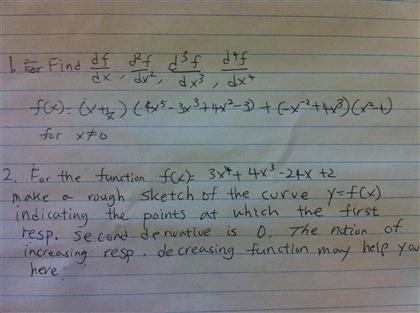 1. Find df/dx, d²f/dx², d³f/dx³, d⁴f/dx⁴
f(x) = (x+1/x) (4x⁵ - 3x³ + 4x² - 3) + (-x⁻² + 4x³) (x²-1)
for x≠0
2. For the function f(x) = 3x⁴ + 4x³ - 24x + 2
make a rough sketch of the curve y=f(x)
indicating the points at which the first
resp. second derivative is 0. The notion of
increasing resp. decreasing function may help you
here.